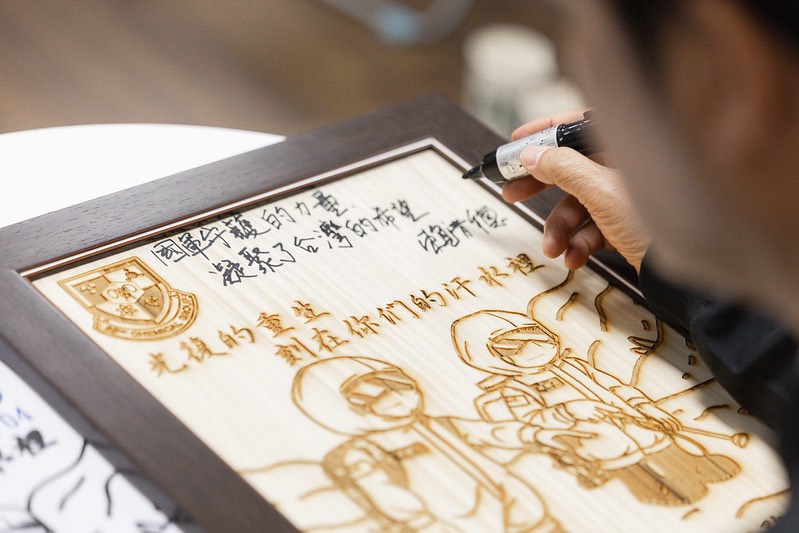 國軍守護的力量
凝聚了台灣的希望
賴清德
光復的重生
刻在你們的汗水裡
裡